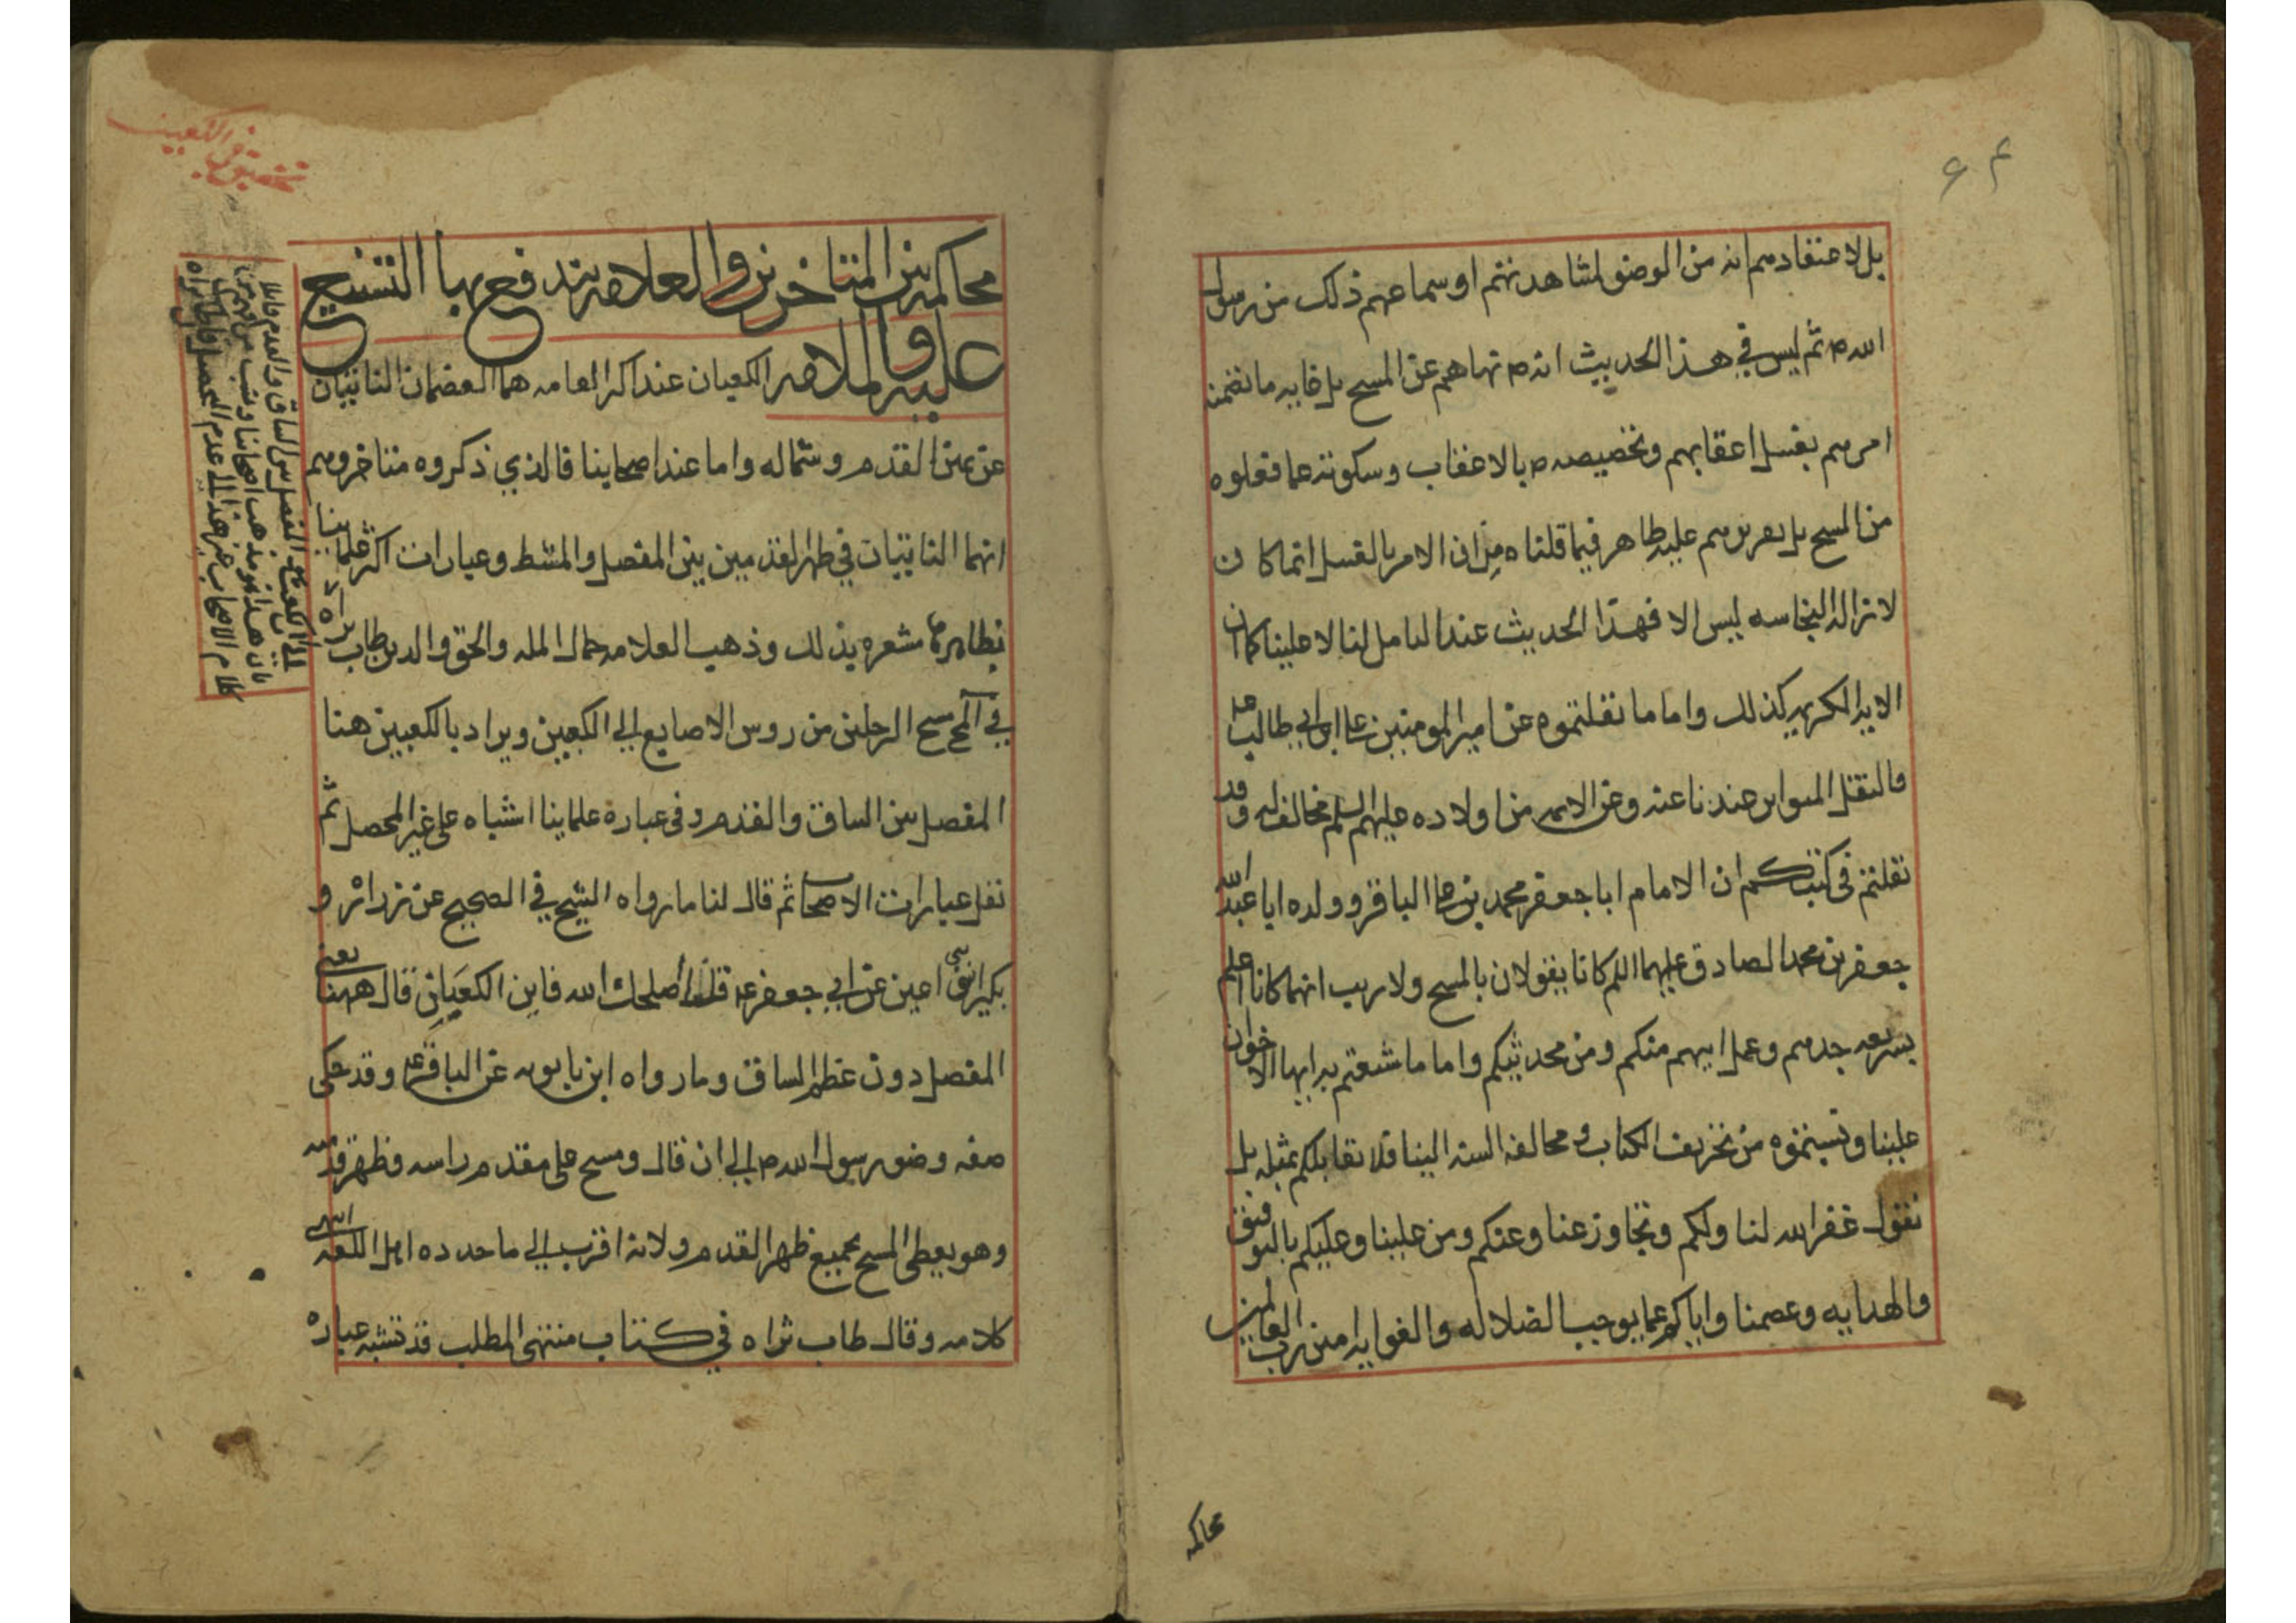 بل لاعتقادهم انه من الوضوء لمشاهدتهم او سماعهم ذلك من رسول
الله ص ثم ليس في هذا الحديث انه ص نهاهم عن المسح بل غايه ما تضمنه
امرهم بغسل اعقابهم وتخصيصه ص بالاعقاب وسكوته عما فعلوه
من المسح بل تقريرهم عليه ظاهر فيما قلناه من ان الامر بالغسل انما كان
لازاله النجاسه ليس الا فهذا الحديث عند التامل لنا لا علينا كما ان
الايه الكريمه كذلك واما ما نقلتموه عن امير المومنين علي ابن ابي طالب ع
فالنقل المتواتر عندنا عنه وعن الايمه من اولاده عليهم السلم مخالف له وقد
نقلتم في كتبكم ان الامام ابا جعفر محمد بن علي الباقر وولده ابا عبد الله
جعفر بن محمد الصادق عليهما السلم كانا يقولان بالمسح ولا ريب انهما كانا اعلم
بشريعه جدهم وعمل ابيهم منكم ومن محدثيكم واما ما شنعتم به ايها الاخوان
علينا ونسبتموه من تحريف الكتاب ومخالفه السنه الينا فلا نقابلكم بمثله بل
نقول غفر الله لنا ولكم وتجاوز عنا وعنكم ومن علينا وعليكم بالتوفيق
والهدايه وعصمنا واياكم عما يوجب الضلاله والغوايه امين رب العالمين
محاكمه
تحقيق في الكعبين
محاكمه بين المتاخرين والعلامه يندفع بها التشنيع
عليه الكعبان عند اكثر العامه هما العضمان الناتيان
عن يمين القدم وشماله واما عند اصحابنا فالذي ذكروه متاخروهم
انهما الناتيان في ظهر القدمين بين المفصل والمشط وعبارات اكثر علماينا
بظاهرها مشعره بذلك وذهب العلامه جمال المله والحق والدين طاب ثراه
في المسح الرجلين من روس الاصابع الي الكعبين ويراد بالكعبين هنا
المفصل بين الساق والقدم وفي عبارة علماينا اشتباه على غير المحصل ثم
نقل عبارات الاصحاب ثم قال لنا ما رواه الشيخ في الصحيح عن زراره و
بكير ابني اعين عن ابي جعفر ع قلنا اصلحك الله فاين الكعبان قال ههنا يعني
المفصل دون عظم الساق وما رواه ابن بابويه عن الباقر ع وقد حكى
صفه وضوء رسول الله ص الي ان قال ومسح على مقدم راسه وظهر قدميه
وهو يعطي المسح بجميع ظهر القدم ولانه اقرب الي ما حدده اهل اللغه انتهى
كلامه وقال طاب ثراه في كتاب منتهى المطلب قد تشتبه عباره